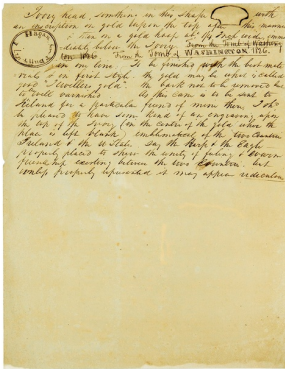 Ivory head, something in this shape with
an inscription on gold
a gold
below the Ivory From the Tomb of
From the Tomb of WASHINGTON
on one line to be finished with the best
and in first style the gold may be what is called
good "Jewellers gold" the bark not to be removed but
well varnished As this cane is to be sent to
Ireland for a particular friend of mine there, I
be pleased to have some kind of an engraving upon
the top of the Ivory (in the center of the gold where the
place is left blank) emblematical of the two Countries
Ireland & the U States Say the Harp & the Eagle
properly placed to shew the unity of feeling & warm
friendship existing between the two countries but
unless properly represented it may appear ridiculous